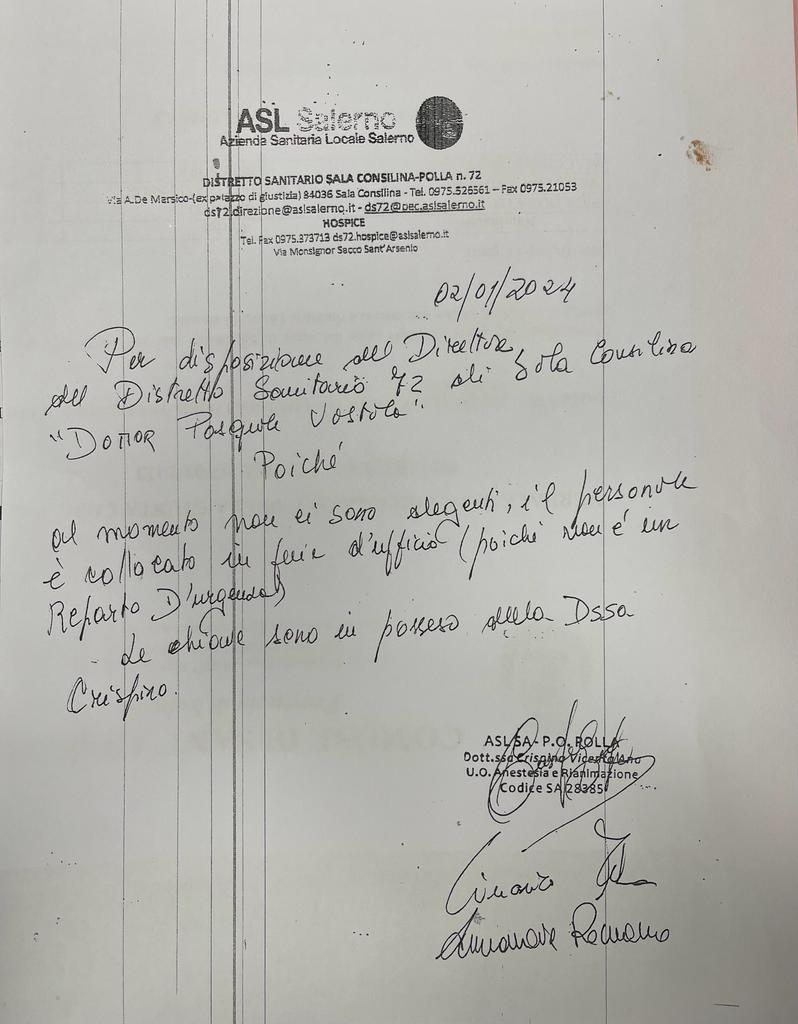 ASL Salerno
Azienda Sanitaria Locale Salerno
DISTRETTO SANITARIO SALA CONSILINA-POLLA n. 72
Via A.De Marsico-(ex palazzo di giustizia) 84036 Sala Consilina - Tel. 0975.526561 – Fax 0975.21053
ds72.direzione@aslsalerno.it - ds72@pec.aslsalerno.it
HOSPICE
Tel. Fax 0975.373713 ds72.hospice@aslsalerno.it
Via Monsignor Sacco Sant'Arsenio
02/01/2024
Per disposizione del Direttore
del Distretto Sanitario 72 di Sala Consilina
"Dottor Pasquale Vastola"
Poiché
al momento non ci sono degenti, il personale
è collocato in ferie d'ufficio (poiché non è un
Reparto D'urgenza)
- Le chiave sono in possesso della Dssa
Crispino.
ASL SA - P.O. POLLA
Dott.ssa Crispino
U.O. Anestesia e Rianimazione
Codice SA 28385
Romano